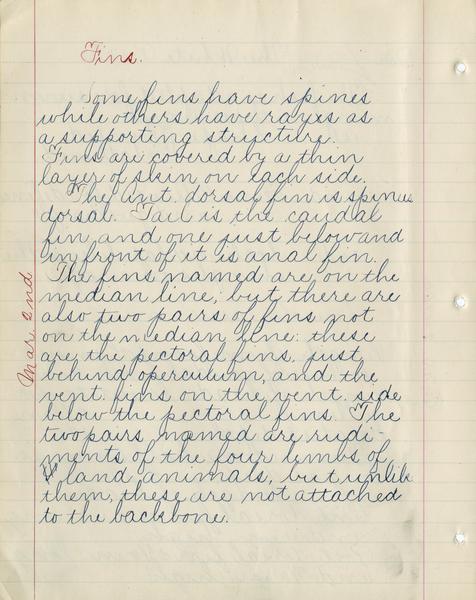 Fins.
Some fins have spines
while others have rayxs as
a supporting structure.
Fins are covered by a thin
layer of skin on each side.
The ant. dorsal fin is spinus
dorsal. Tail is the caudal
fin and one just below and
in front of it is anal fin.
Mar. 2nd
The fins named are on the
median line, but there are
also two pairs of fins not
on the median line: these
are the pectoral fins, just
behind operculum, and the
vent. fins on the vent. side
below the pectoral fins. The
two pairs named are rudi-
ments of the four limbs of
land animals, but unlike
them, these are not attached
to the backbone.